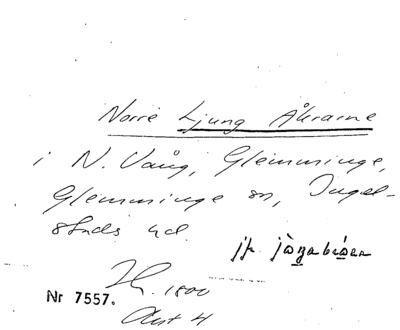 Norre Ljung Åkrarne
i N. Vång, Glemminge,
Glemminge sn, Ingel-
stads hd.
jfr
1800
Nr 7557.
Akt 4